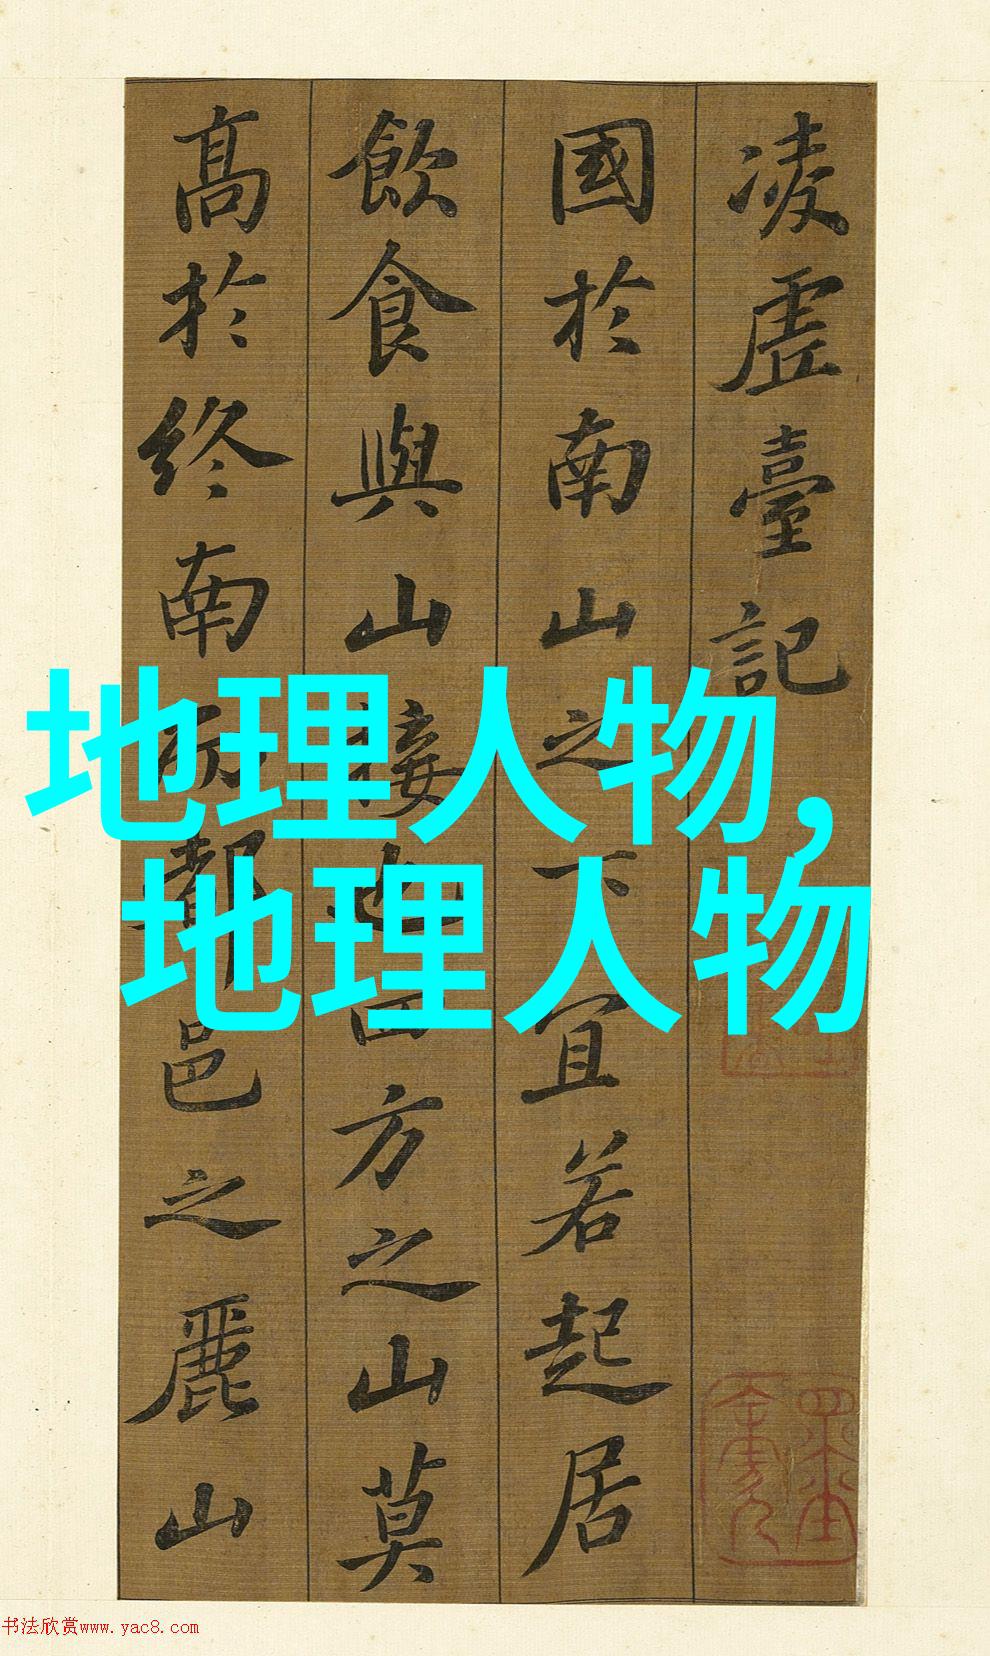 凌虛臺記
國於南山之下宜若起居
飲食與山接也四方之山莫
高於終南而都邑之麗山
地理人物,
地理人物
书法欣赏www.yac8.com